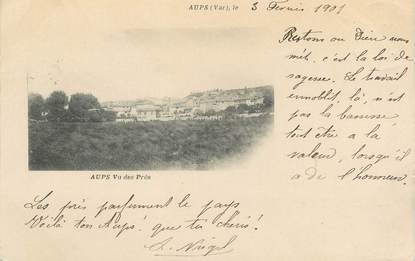 AUPS (Var), le 3 Février 1901
Restons où Dieu nous
mét, c'est la loi de
sagesse. Le travail
ennoblit, là, n'est
pas la
tout être a la
valeur, lorsqu'il
a de l'honneur.
AUPS Vu des Prés
Les près parfument le pays
Voilà ton Aups! que tu chéris!